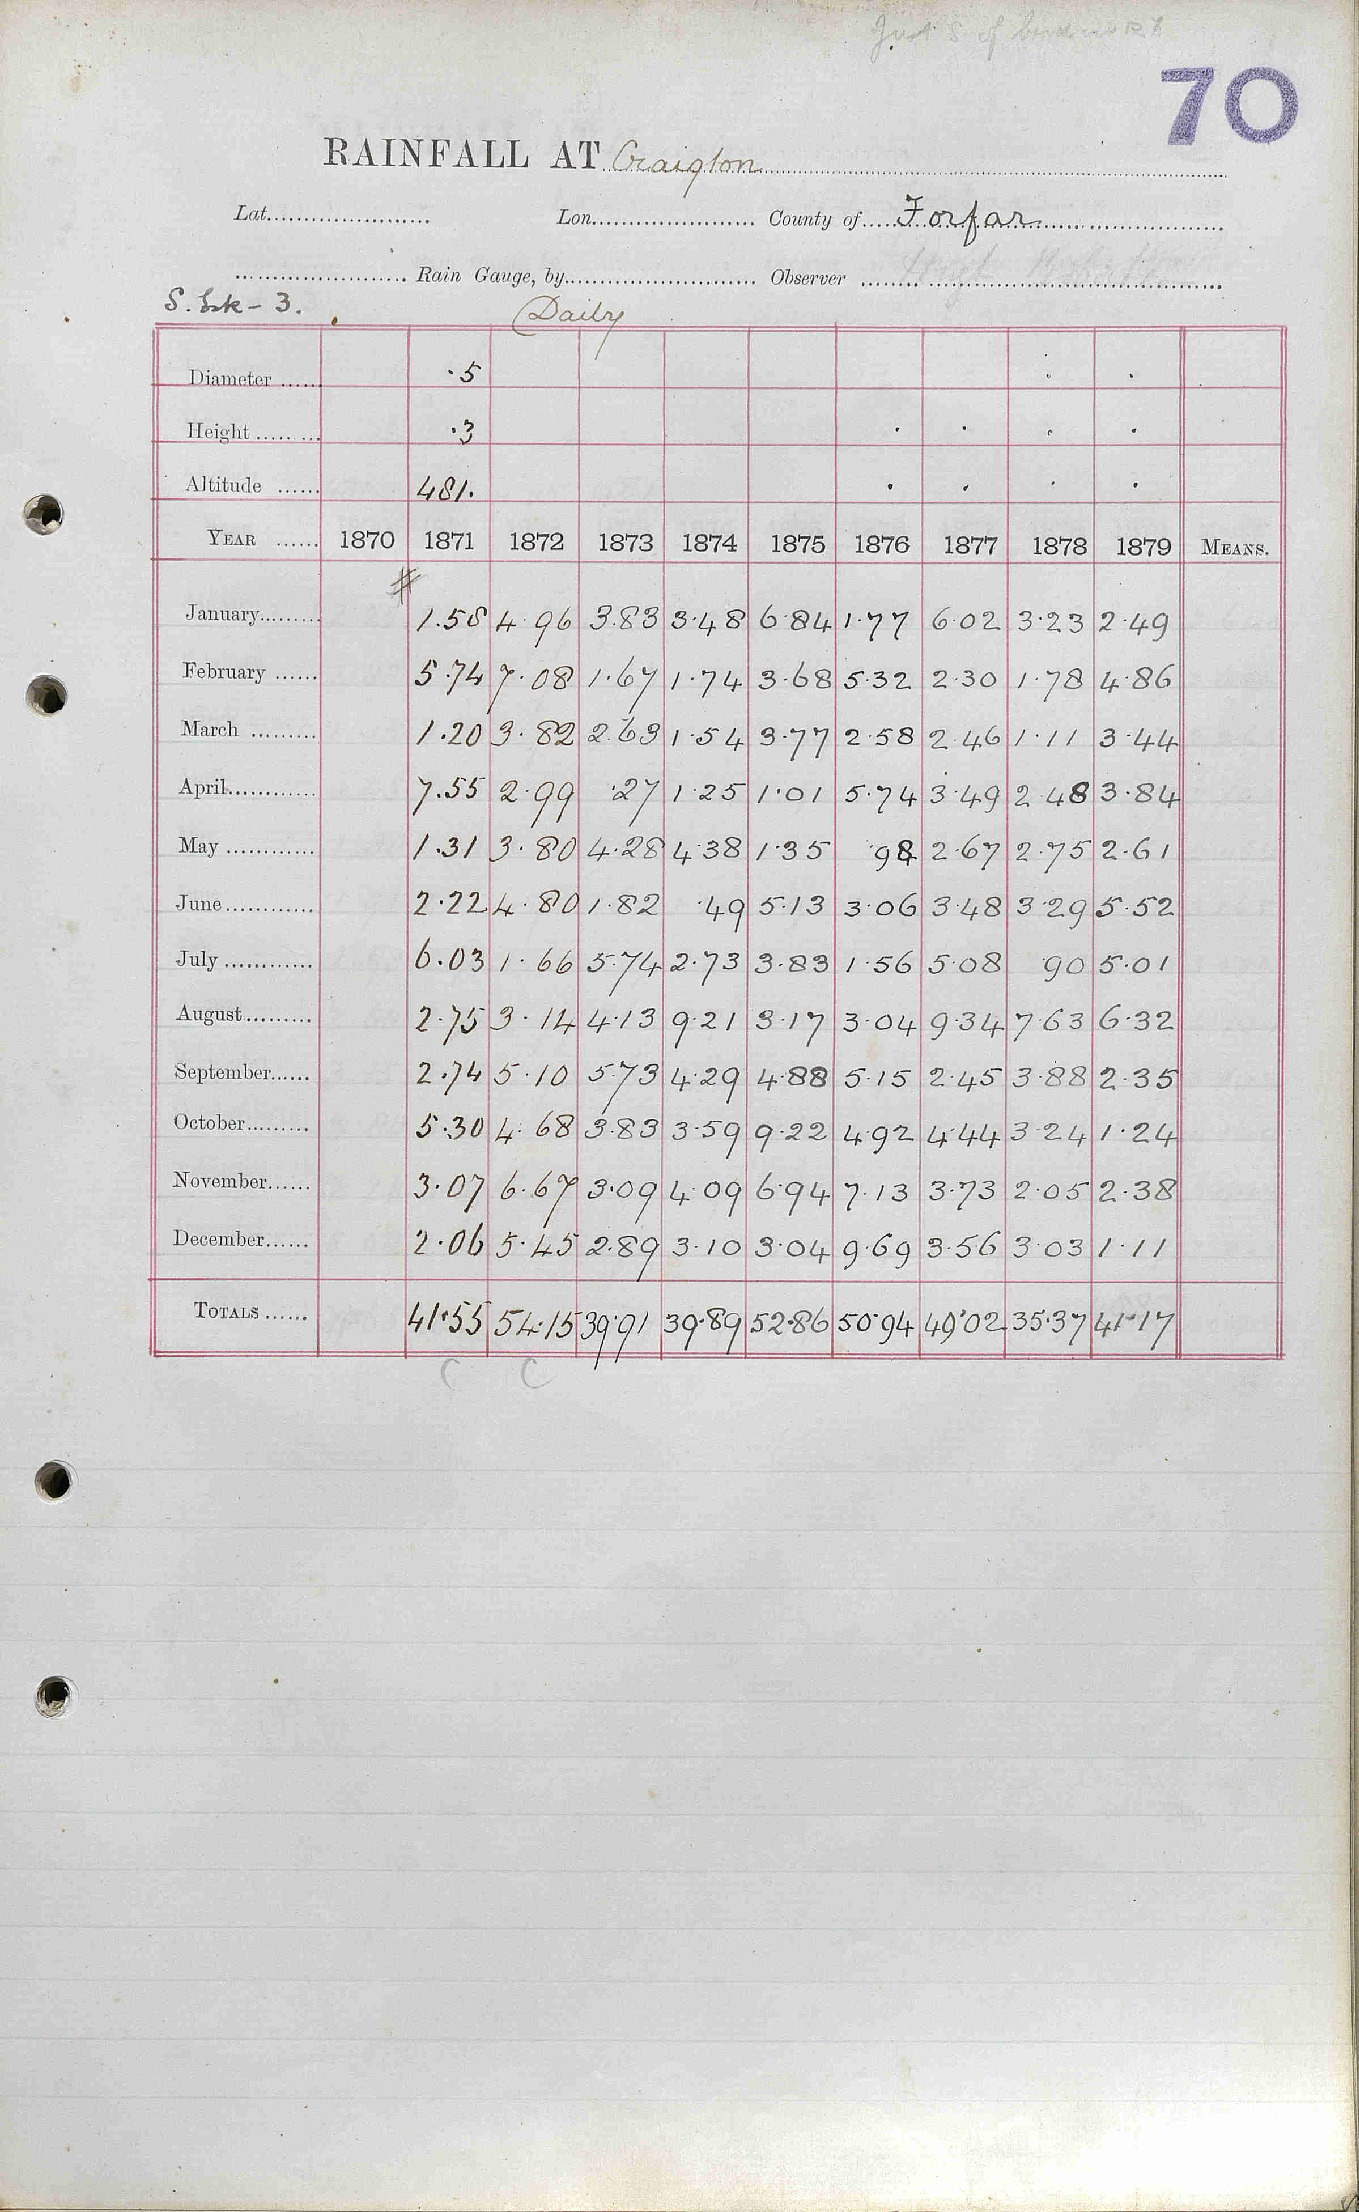 Just S of
70
RAINFALL AT Craigton
Lat. Lon. County of Forfar
Rain Gauge, by Observer
S. Esk - 3. Daily
Diameter ·5
Height ·3
Altitude 481.
YEAR 1870 1871 1872 1873 1874 1875 1876 1877 1878 1879 MEANS.
#
January 1.58 4.96 3.83 3.48 6.84 1.77 6.02 3.23 2.49
February 5.74 7.08 1.67 1.74 3.68 5.32 2.30 1.78 4.86
March 1.20 3.82 2.63 1.54 3.77 2.58 2.46 1.11 3.44
April 7.55 2.99 .27 1.25 1.01 5.74 3.49 2.48 3.84
May 1.31 3.80 4.28 4.38 1.35 .98 2.67 2.75 2.61
June 2.22 4.80 1.82 .49 5.13 3.06 3.48 3.29 5.52
July 6.03 1.66 5.74 2.73 3.83 1.56 5.08 .90 5.01
August 2.75 3.14 4.13 9.21 3.17 3.04 9.34 7.63 6.32
September 2.74 5.10 5.73 4.29 4.88 5.15 2.45 3.88 2.35
October 5.30 4.68 3.83 3.59 9.22 4.92 4.44 3.24 1.24
November 3.07 6.67 3.09 4.09 6.94 7.13 3.73 2.05 2.38
December 2.06 5.45 2.89 3.10 3.04 9.69 3.56 3.03 1.11
TOTALS 41.55 54.15 39.91 39.89 52.86 50.94 49.02 35.37 41.17
C C